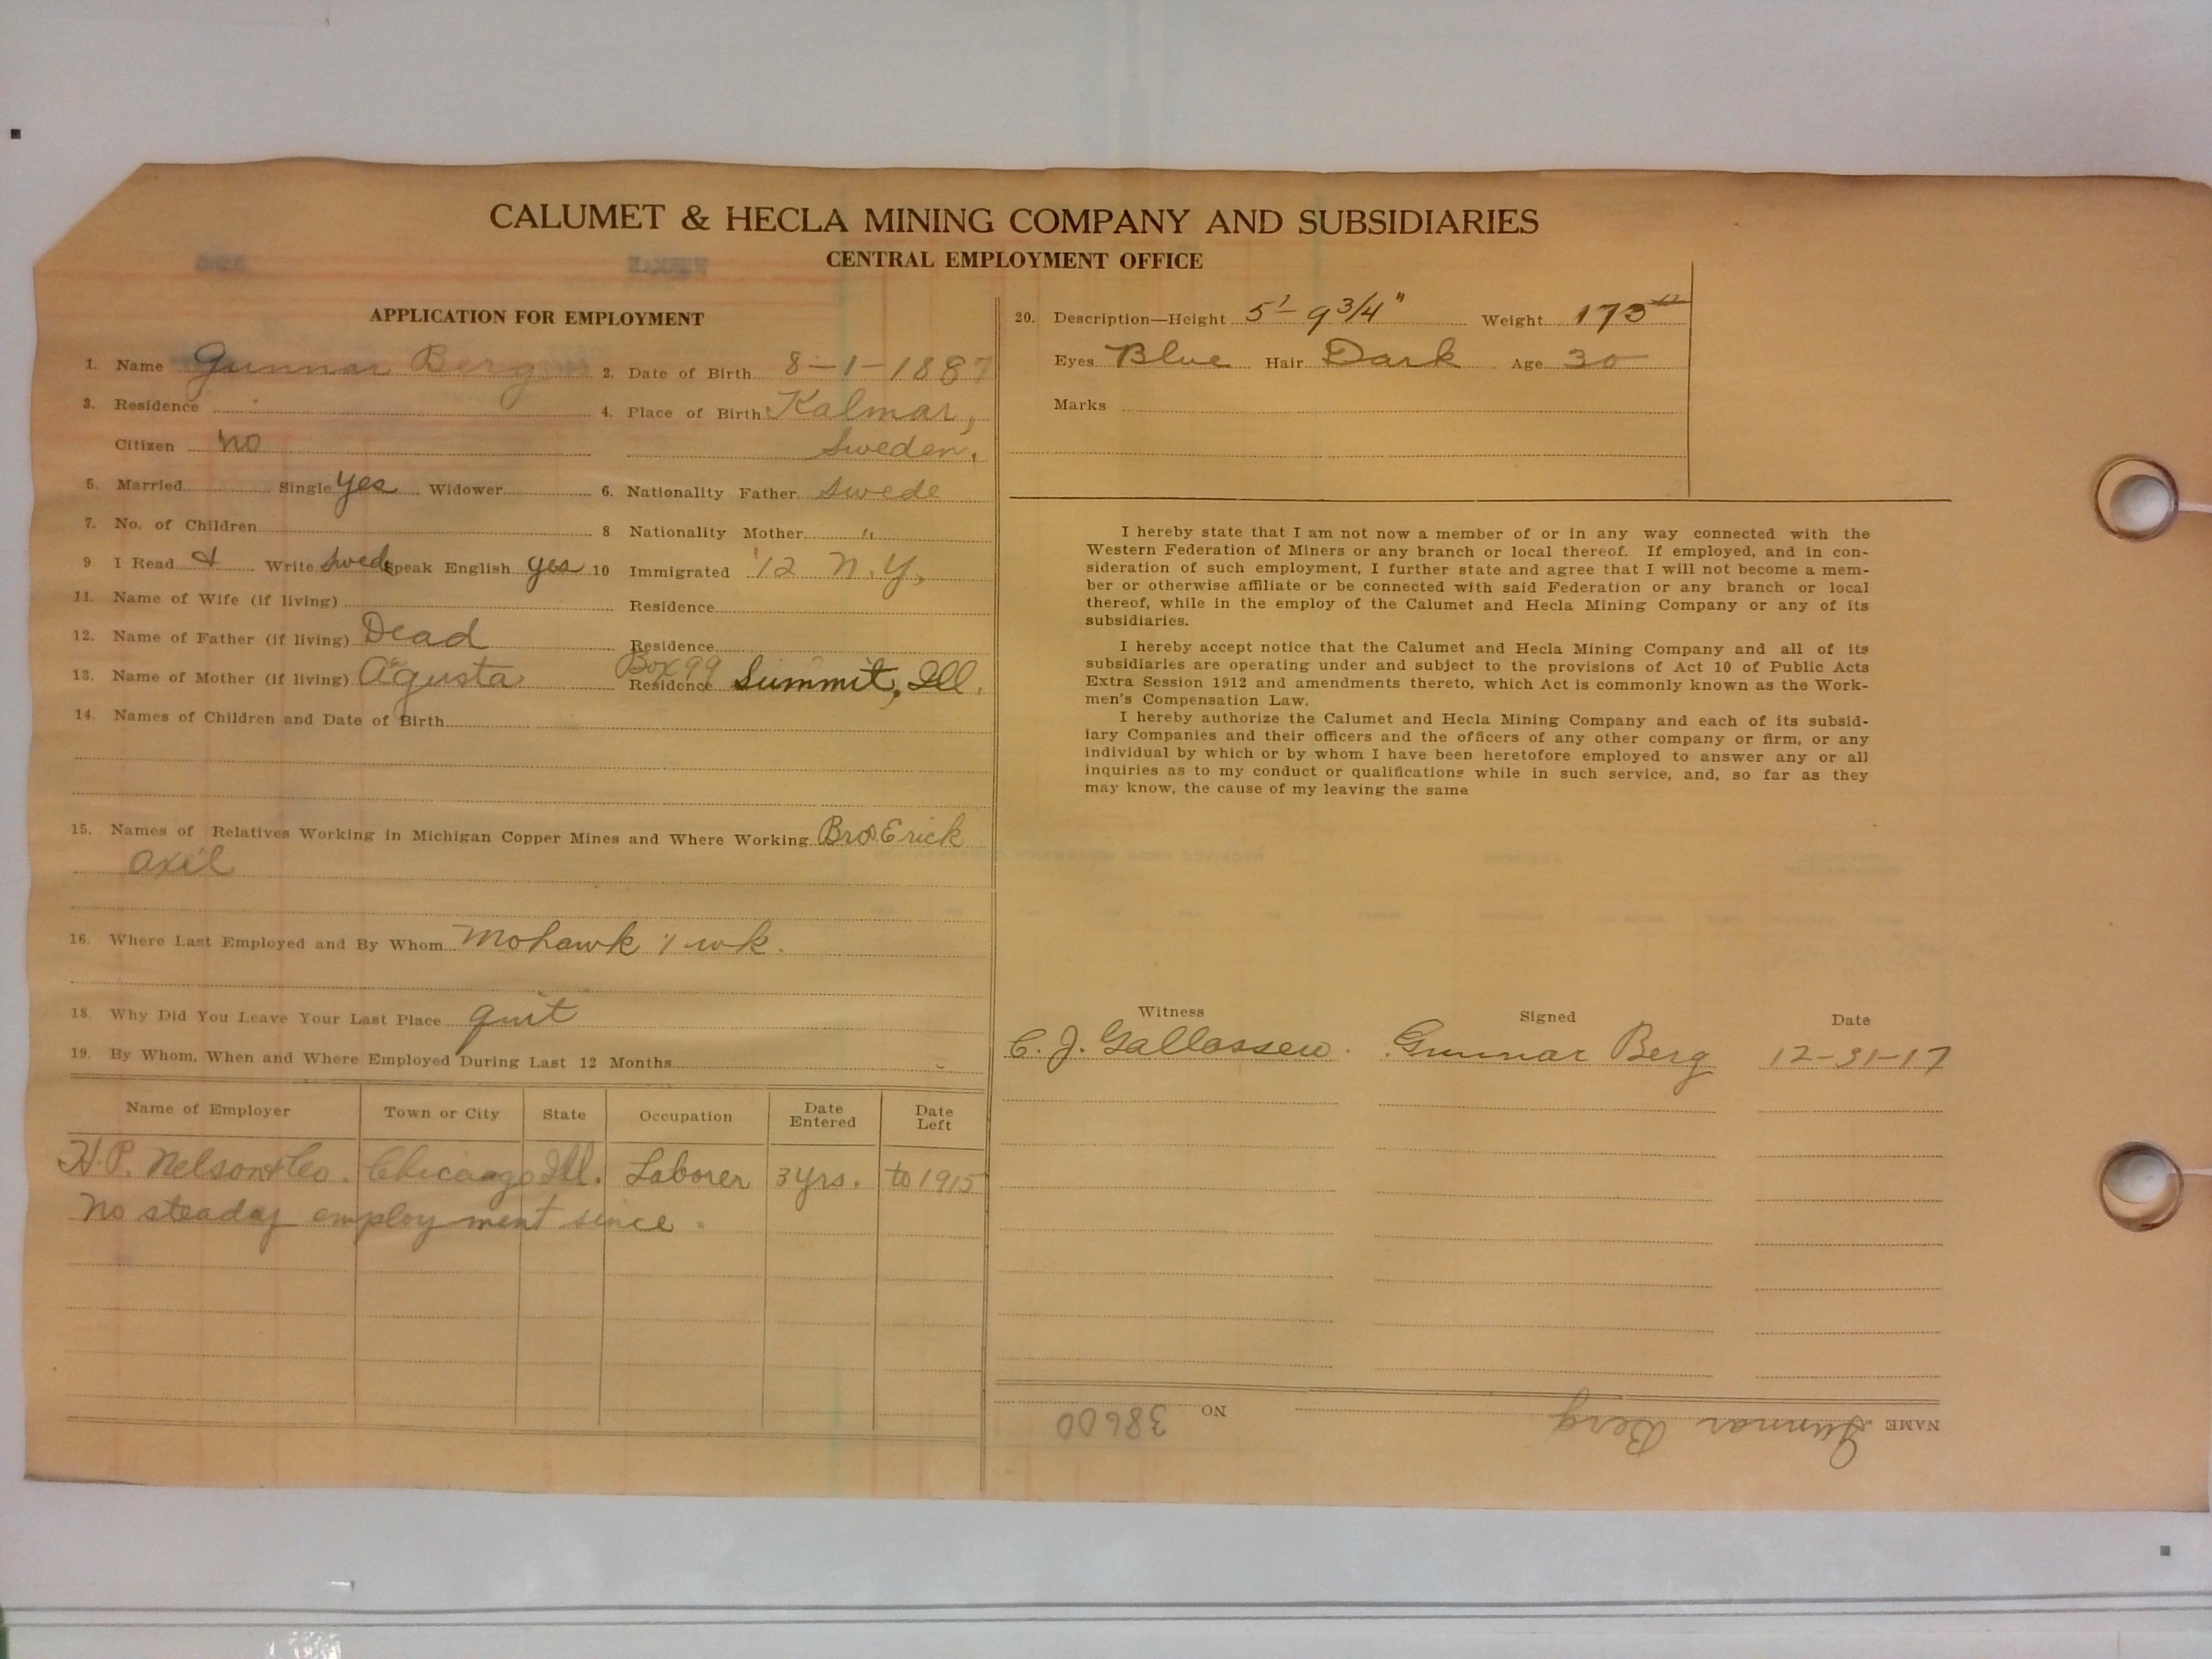 CALUMET & HECLA MINING COMPANY AND SUBSIDIARIES
CENTRAL EMPLOYMENT OFFICE
APPLICATION FOR EMPLOYMENT
1. Name Gunnar Berg 2. Date of Birth 8-1-1887
3. Residence 4. Place of Birth Kalmar,
Citizen no Sweden.
5. Married Single yes Widower 6. Nationality Father Swede
7. No. of Children 8 Nationality Mother "
9. I Read & Write Swed Speak English yes 10 Immigrated '12 N.Y.
11. Name of Wife (if living) Residence
12. Name of Father (if living) Dead Residence
13. Name of Mother (if living) Agusta Residence Box 99 Summit, Ill.
14. Names of Children and Date of Birth
15. Names of Relatives Working in Michigan Copper Mines and Where Working Bro. Erick
Axil
16. Where Last Employed and By Whom Mohawk 1 wk.
18. Why Did You Leave Your Last Place quit
19. By Whom, When and Where Employed During Last 12 Months
Name of Employer Town or City State Occupation Date Entered Date Left
H.P. Nelson & Co. Chicago Ill. Laborer 3 yrs. to 1915
No steady employment since.
20. Description—Height 5'-9 3/4" Weight 173
Eyes Blue Hair Dark Age 30
Marks
I hereby state that I am not now a member of or in any way connected with the
Western Federation of Miners or any branch or local thereof. If employed, and in con-
sideration of such employment, I further state and agree that I will not become a mem-
ber or otherwise affiliate or be connected with said Federation or any branch or local
thereof, while in the employ of the Calumet and Hecla Mining Company or any of its
subsidiaries.
I hereby accept notice that the Calumet and Hecla Mining Company and all of its
subsidiaries are operating under and subject to the provisions of Act 10 of Public Acts
Extra Session 1912 and amendments thereto, which Act is commonly known as the Work-
men's Compensation Law.
I hereby authorize the Calumet and Hecla Mining Company and each of its subsid-
iary Companies and their officers and the officers of any other company or firm, or any
individual by which or by whom I have been heretofore employed to answer any or all
inquiries as to my conduct or qualifications while in such service, and, so far as they
may know, the cause of my leaving the same
Witness Signed Date
C. J. Gallossew. Gunnar Berg 12-31-17
NAME Gunnar Berg NO 38600